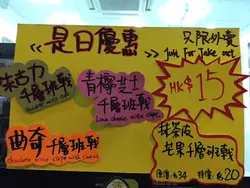 是日優惠
只限外賣
just For Take out
朱古力
千層班戟
青檸芝士
千層班戟
Lime cheese mille crepe
HK$15
曲奇
千層班戟
chocolate mille crepe with cookies
抹茶皮
芒果千層班戟
原價:$34
特價:$20